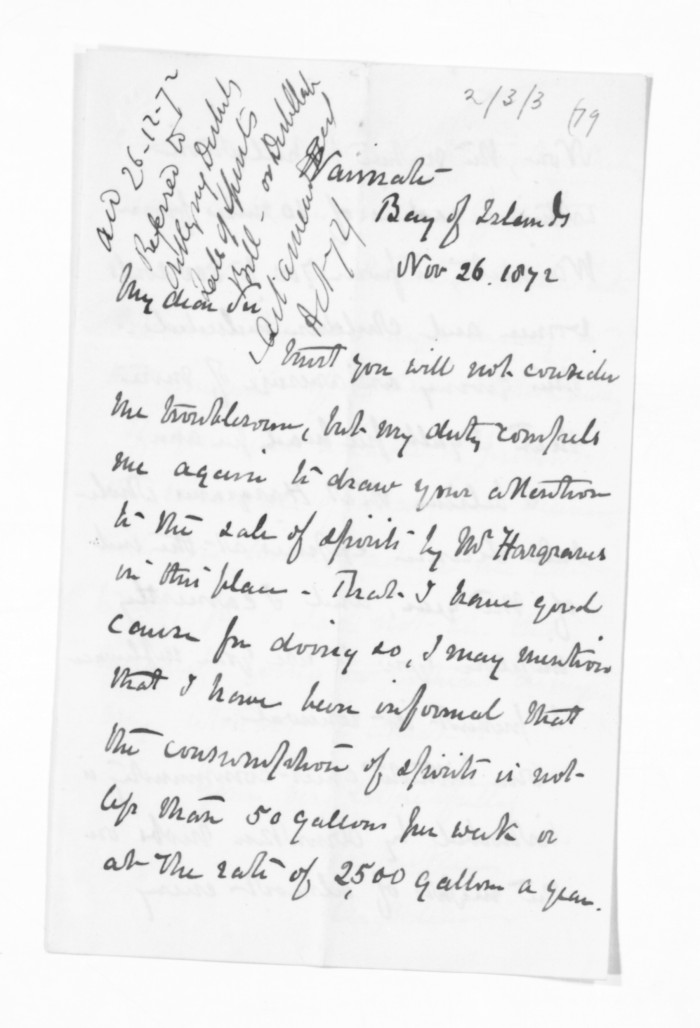 2/3/3
(79
and 26-12-72
Referred to
Outlying Districts
Sale of Spirits
Bill or Distillation
Act amendment
Act-72
Waimate
Bay of Islands
Nov 26. 1872
My dear Sir
I trust you will not consider
me troublesome, but my duty compels
me again to draw your attention
to the sale of spirits by Mr Hargraves
in this place - That I have good
cause for doing so, I may mention
that I have been informed that
the consumption of spirits is not
less than 50 gallons per week or
at the rate of 2,500 gallons a year.